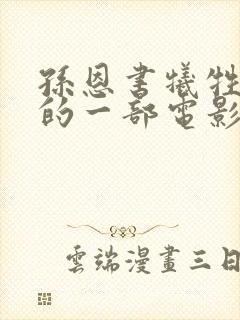 孫恩書犧牲
的一部電影
雲端漫畫三日